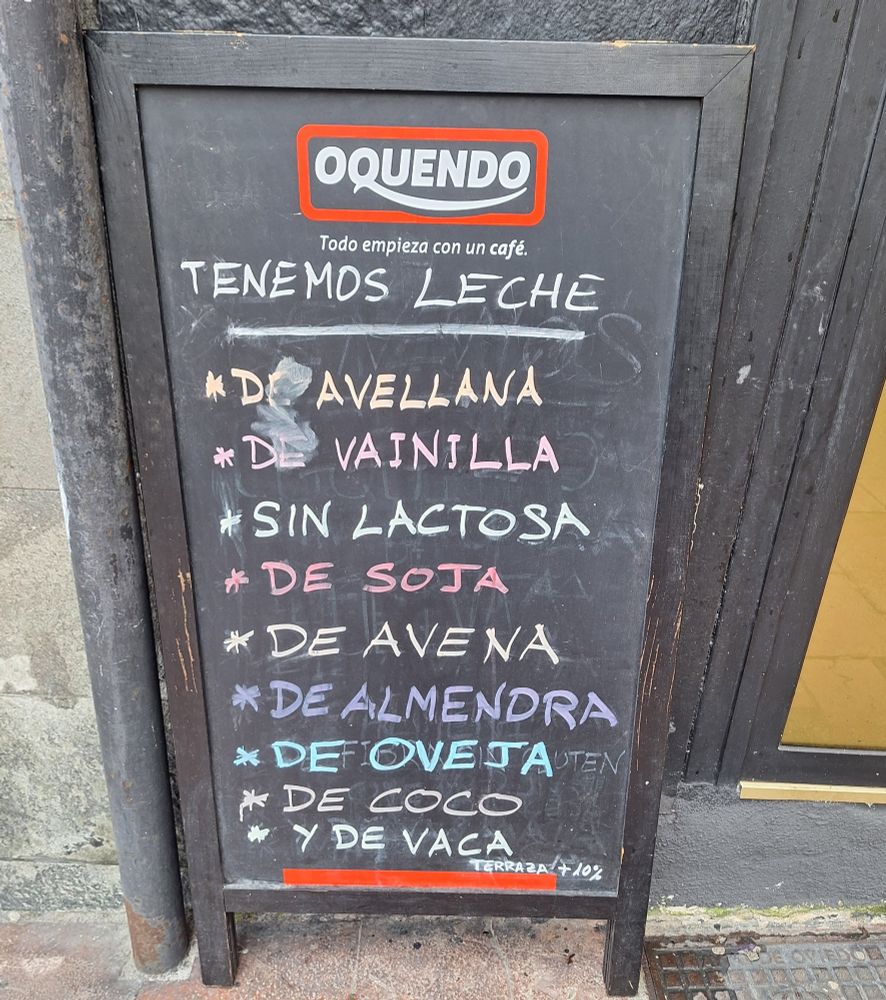 OQUENDO
Todo empieza con un café.
TENEMOS LECHE
* DE AVELLANA
* DE VAINILLA
* SIN LACTOSA
* DE SOJA
* DE AVENA
* DE ALMENDRA
* DE OVEJA
* DE COCO
* Y DE VACA
TERRAZA +10%
DE OVIEDO